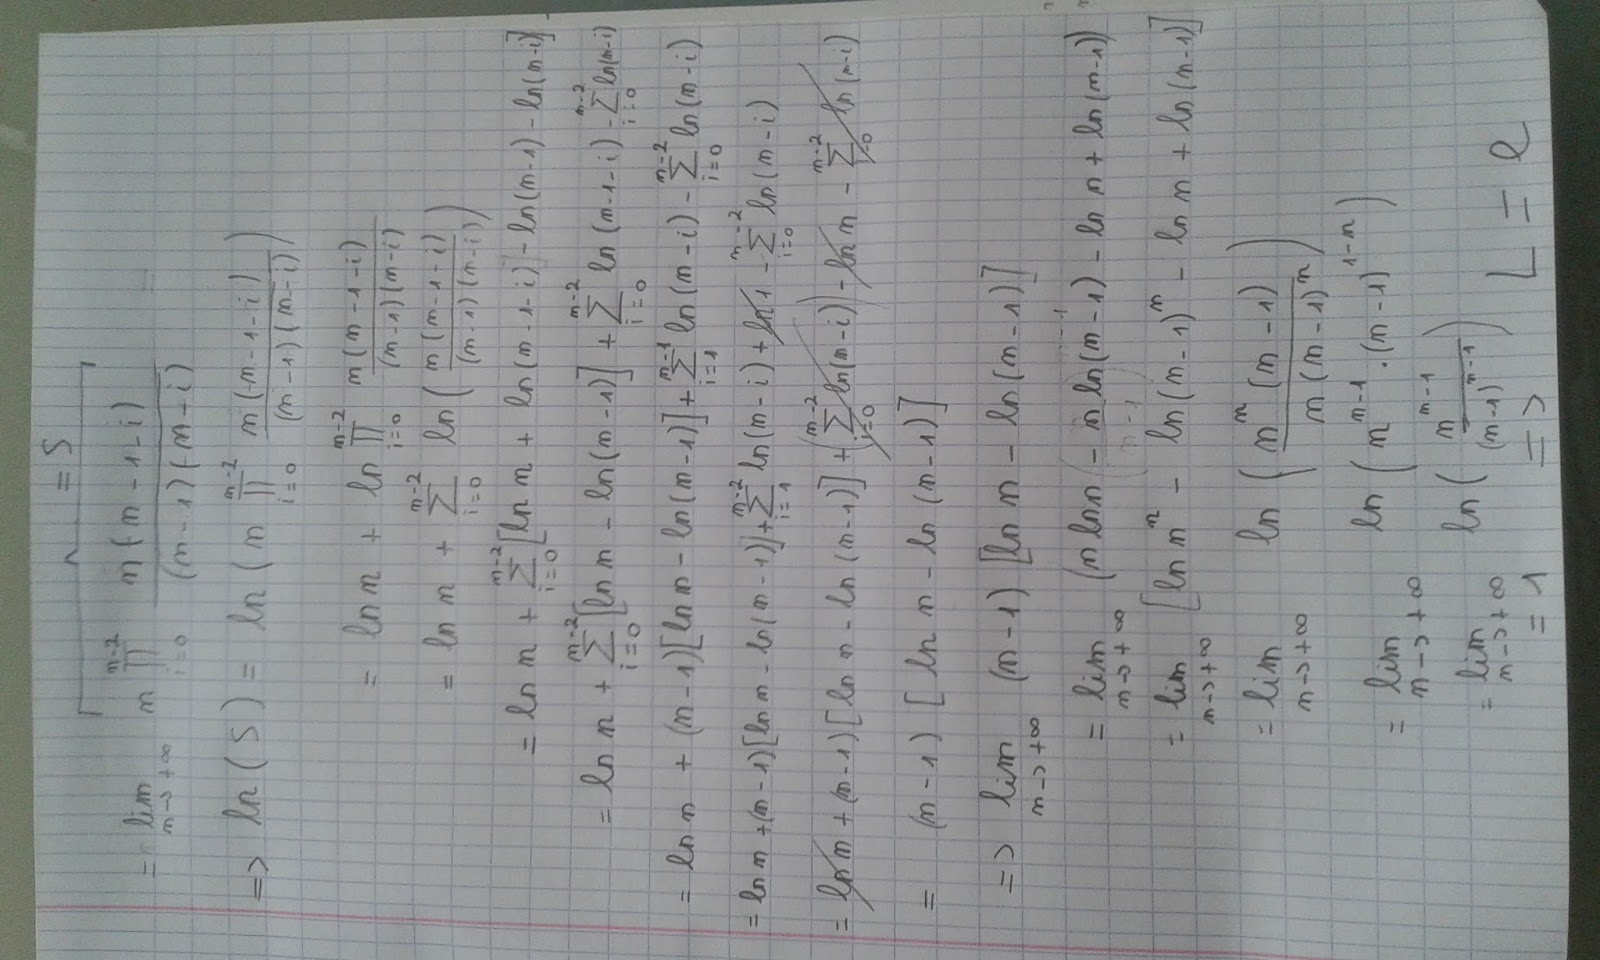 = S
= lim n→+∞ n ∏ i=0 n-2 n(n-1-i) / (n-1)(n-i)
=> ln(S) = ln(n ∏ i=0 n-2 n(n-1-i) / (n-1)(n-i))
= ln n + ln ∏ i=0 n-2 n(n-1-i) / (n-1)(n-i)
= ln n + ∑ i=0 n-2 ln(n(n-1-i) / (n-1)(n-i))
= ln n + ∑ i=0 n-2 [ln n + ln(n-1-i) - ln(n-1) - ln(n-i)]
= ln n + ∑ i=0 n-2 [ln n - ln(n-1)] + ∑ i=0 n-2 ln(n-1-i) - ∑ i=0 n-2 ln(n-i)
= ln n + (n-1)[ln n - ln(n-1)] + ∑ i=1 n-1 ln(n-i) - ∑ i=0 n-2 ln(n-i)
= ln n + (n-1)[ln n - ln(n-1)] + ∑ i=1 n-2 ln(n-i) + ln 1 - ∑ i=0 n-2 ln(n-i)
= ln n + (n-1)[ln n - ln(n-1)] + (∑ i=0 n-2 ln(n-i)) - ln n - ∑ i=0 n-2 ln(n-i)
= (n-1) [ln n - ln(n-1)]
=> lim n→+∞ (n-1) [ln n - ln(n-1)]
= lim n→+∞ (n ln n - n ln(n-1) - ln n + ln(n-1))
= lim n→+∞ [ln n^n - ln(n-1)^n - ln n + ln(n-1)]
= lim n→+∞ ln (n^n (n-1) / n(n-1)^n)
= lim n→+∞ ln (n^n-1 · (n-1)^1-n)
= lim n→+∞ ln (n^n-1 / (n-1)^n-1)
= 1 => L = e